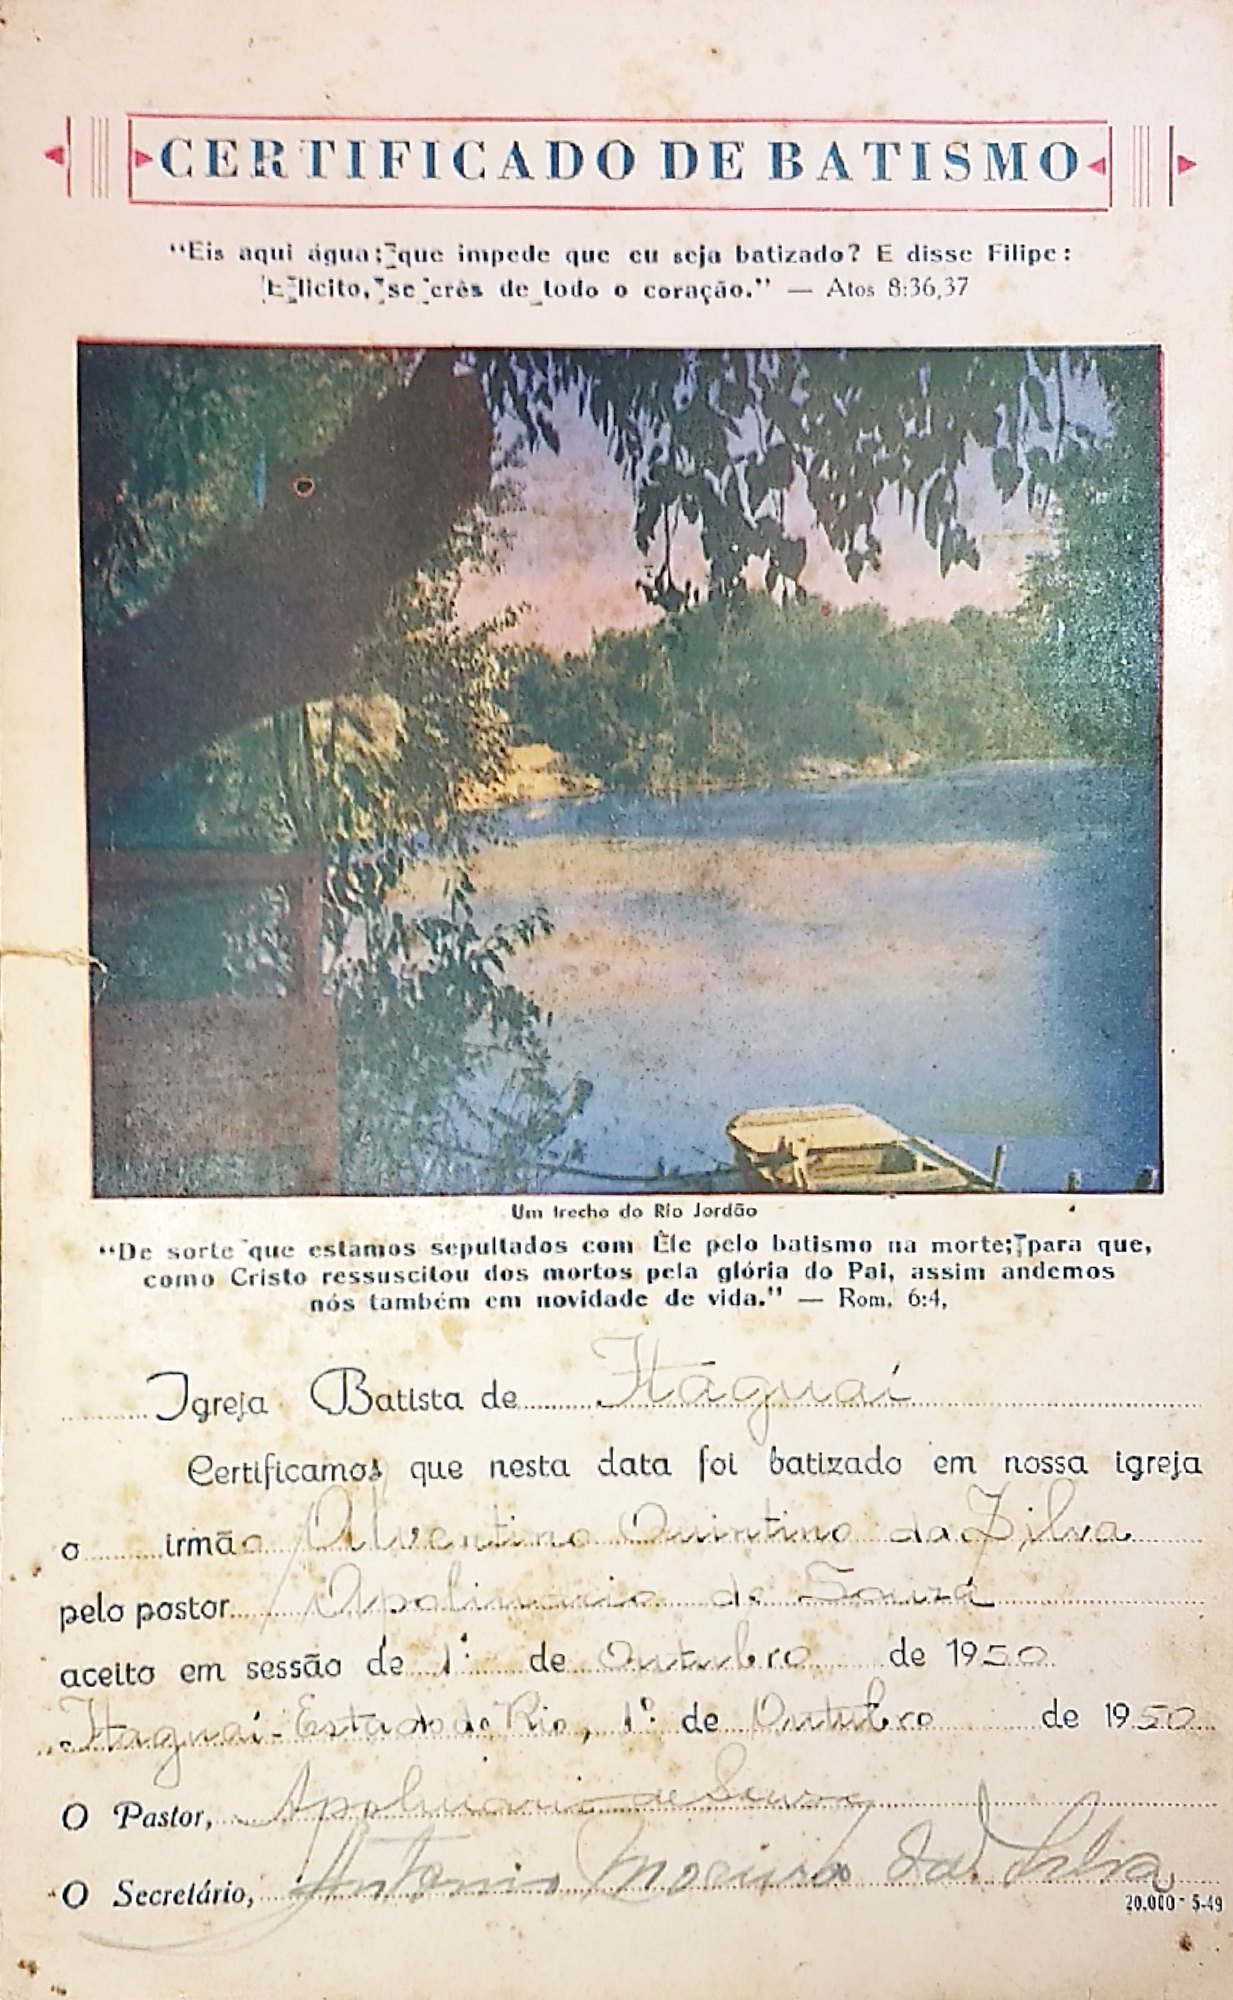 CERTIFICADO DE BATISMO
“Eis aqui água; que impede que eu seja batizado? E disse Filipe:
E lícito, se crês de todo o coração.” — Atos 8:36,37
Um trecho do Rio Jordão
“De sorte que estamos sepultados com Êle pelo batismo na morte; para que,
como Cristo ressuscitou dos mortos pela glória do Pai, assim andemos
nós também em novidade de vida.” — Rom. 6:4,
Igreja Batista de Itaguaí
Certificamos que nesta data foi batizado em nossa igreja
o irmão Alventino Quintino da Silva
pelo pastor Apolinario de Souza
aceito em sessão de 1º de Outubro de 1950
Itaguaí - Estado do Rio, 1º de Outubro de 1950
O Pastor, Apolinario de Souza
O Secretário, Antonio Moreira da Silva
20.000 - 5-49